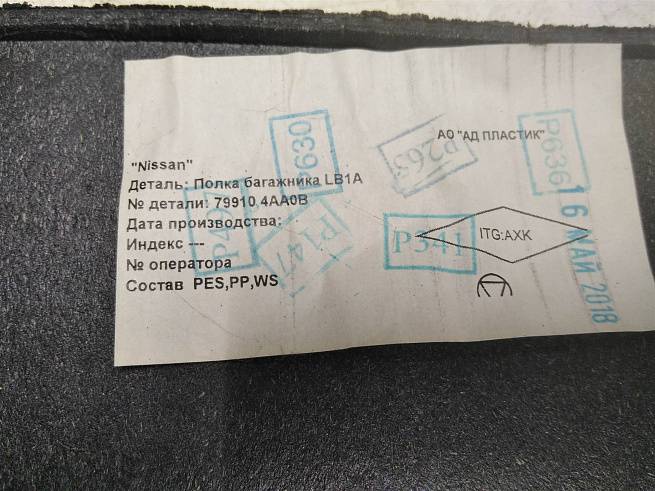 АО "АД ПЛАСТИК"
"Nissan"
Деталь: Полка багажника LB1A
№ детали: 79910 4AA0B
Дата производства:
Индекс ---
№ оператора
Состав PES,PP,WS
ITG:AXK
P630
P263
P636
P497
P147
P341
16 МАЙ 2018